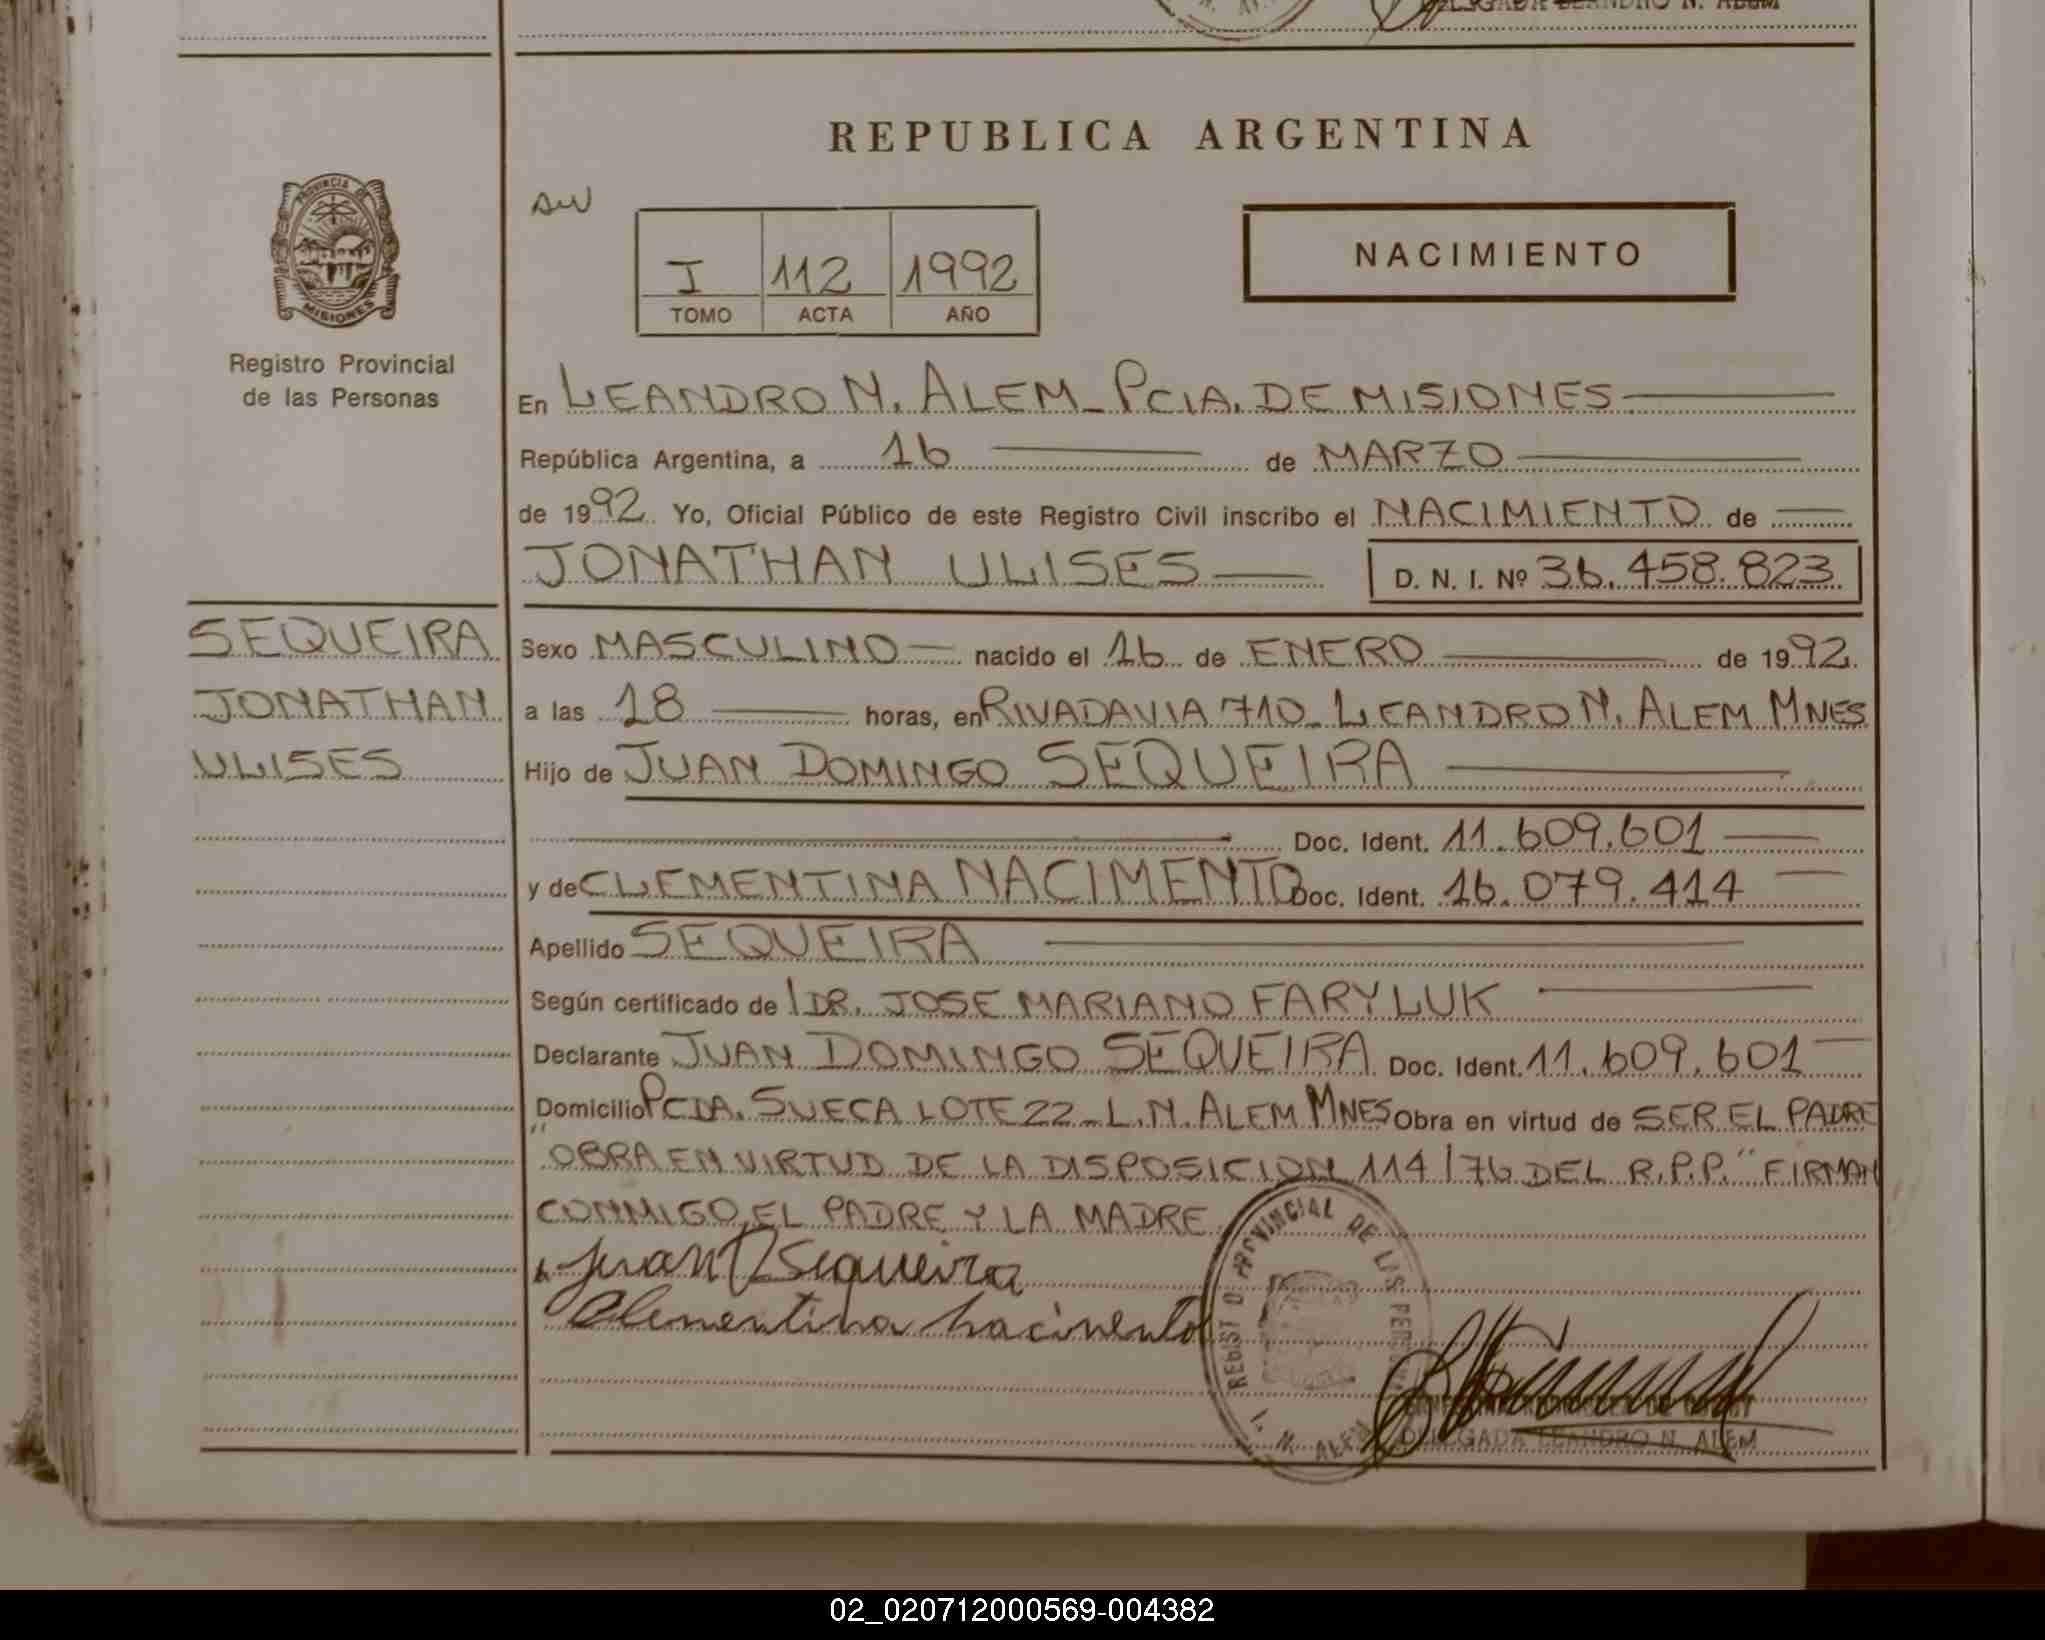 DELEGADA LEANDRO N. ALEM
REPUBLICA ARGENTINA
PROVINCIA DE
MISIONES
Registro Provincial
de las Personas
I 112 1992
TOMO ACTA AÑO
NACIMIENTO
En LEANDRO N. ALEM - PCIA. DE MISIONES
República Argentina, a 16 de MARZO
de 1992. Yo, Oficial Público de este Registro Civil inscribo el NACIMIENTO de
JONATHAN ULISES D. N. I. Nº 36.458.823
SEQUEIRA
JONATHAN
ULISES
Sexo MASCULINO nacido el 16 de ENERO de 1992.
a las 18 horas, en RIVADAVIA 710 - LEANDRO N. ALEM MNES
Hijo de JUAN DOMINGO SEQUEIRA
Doc. Ident. 11.609.601
y de CLEMENTINA NACIMENTO Doc. Ident. 16.079.414
Apellido SEQUEIRA
Según certificado de DR. JOSE MARIANO FARYLUK
Declarante JUAN DOMINGO SEQUEIRA Doc. Ident. 11.609.601
Domicilio PCIA. SUECA LOTE 22 - L.N. ALEM MNES Obra en virtud de SER EL PADRE
"OBRA EN VIRTUD DE LA DISPOSICION 114/76 DEL R.P.P." FIRMAN
CONMIGO, EL PADRE Y LA MADRE
Juan D Sequeira
Clementina nacimento
REGIST O PROVINCIAL DE LAS PERSONAS
L. N. ALEM
DELEGADA LEANDRO N. ALEM
02_020712000569-004382